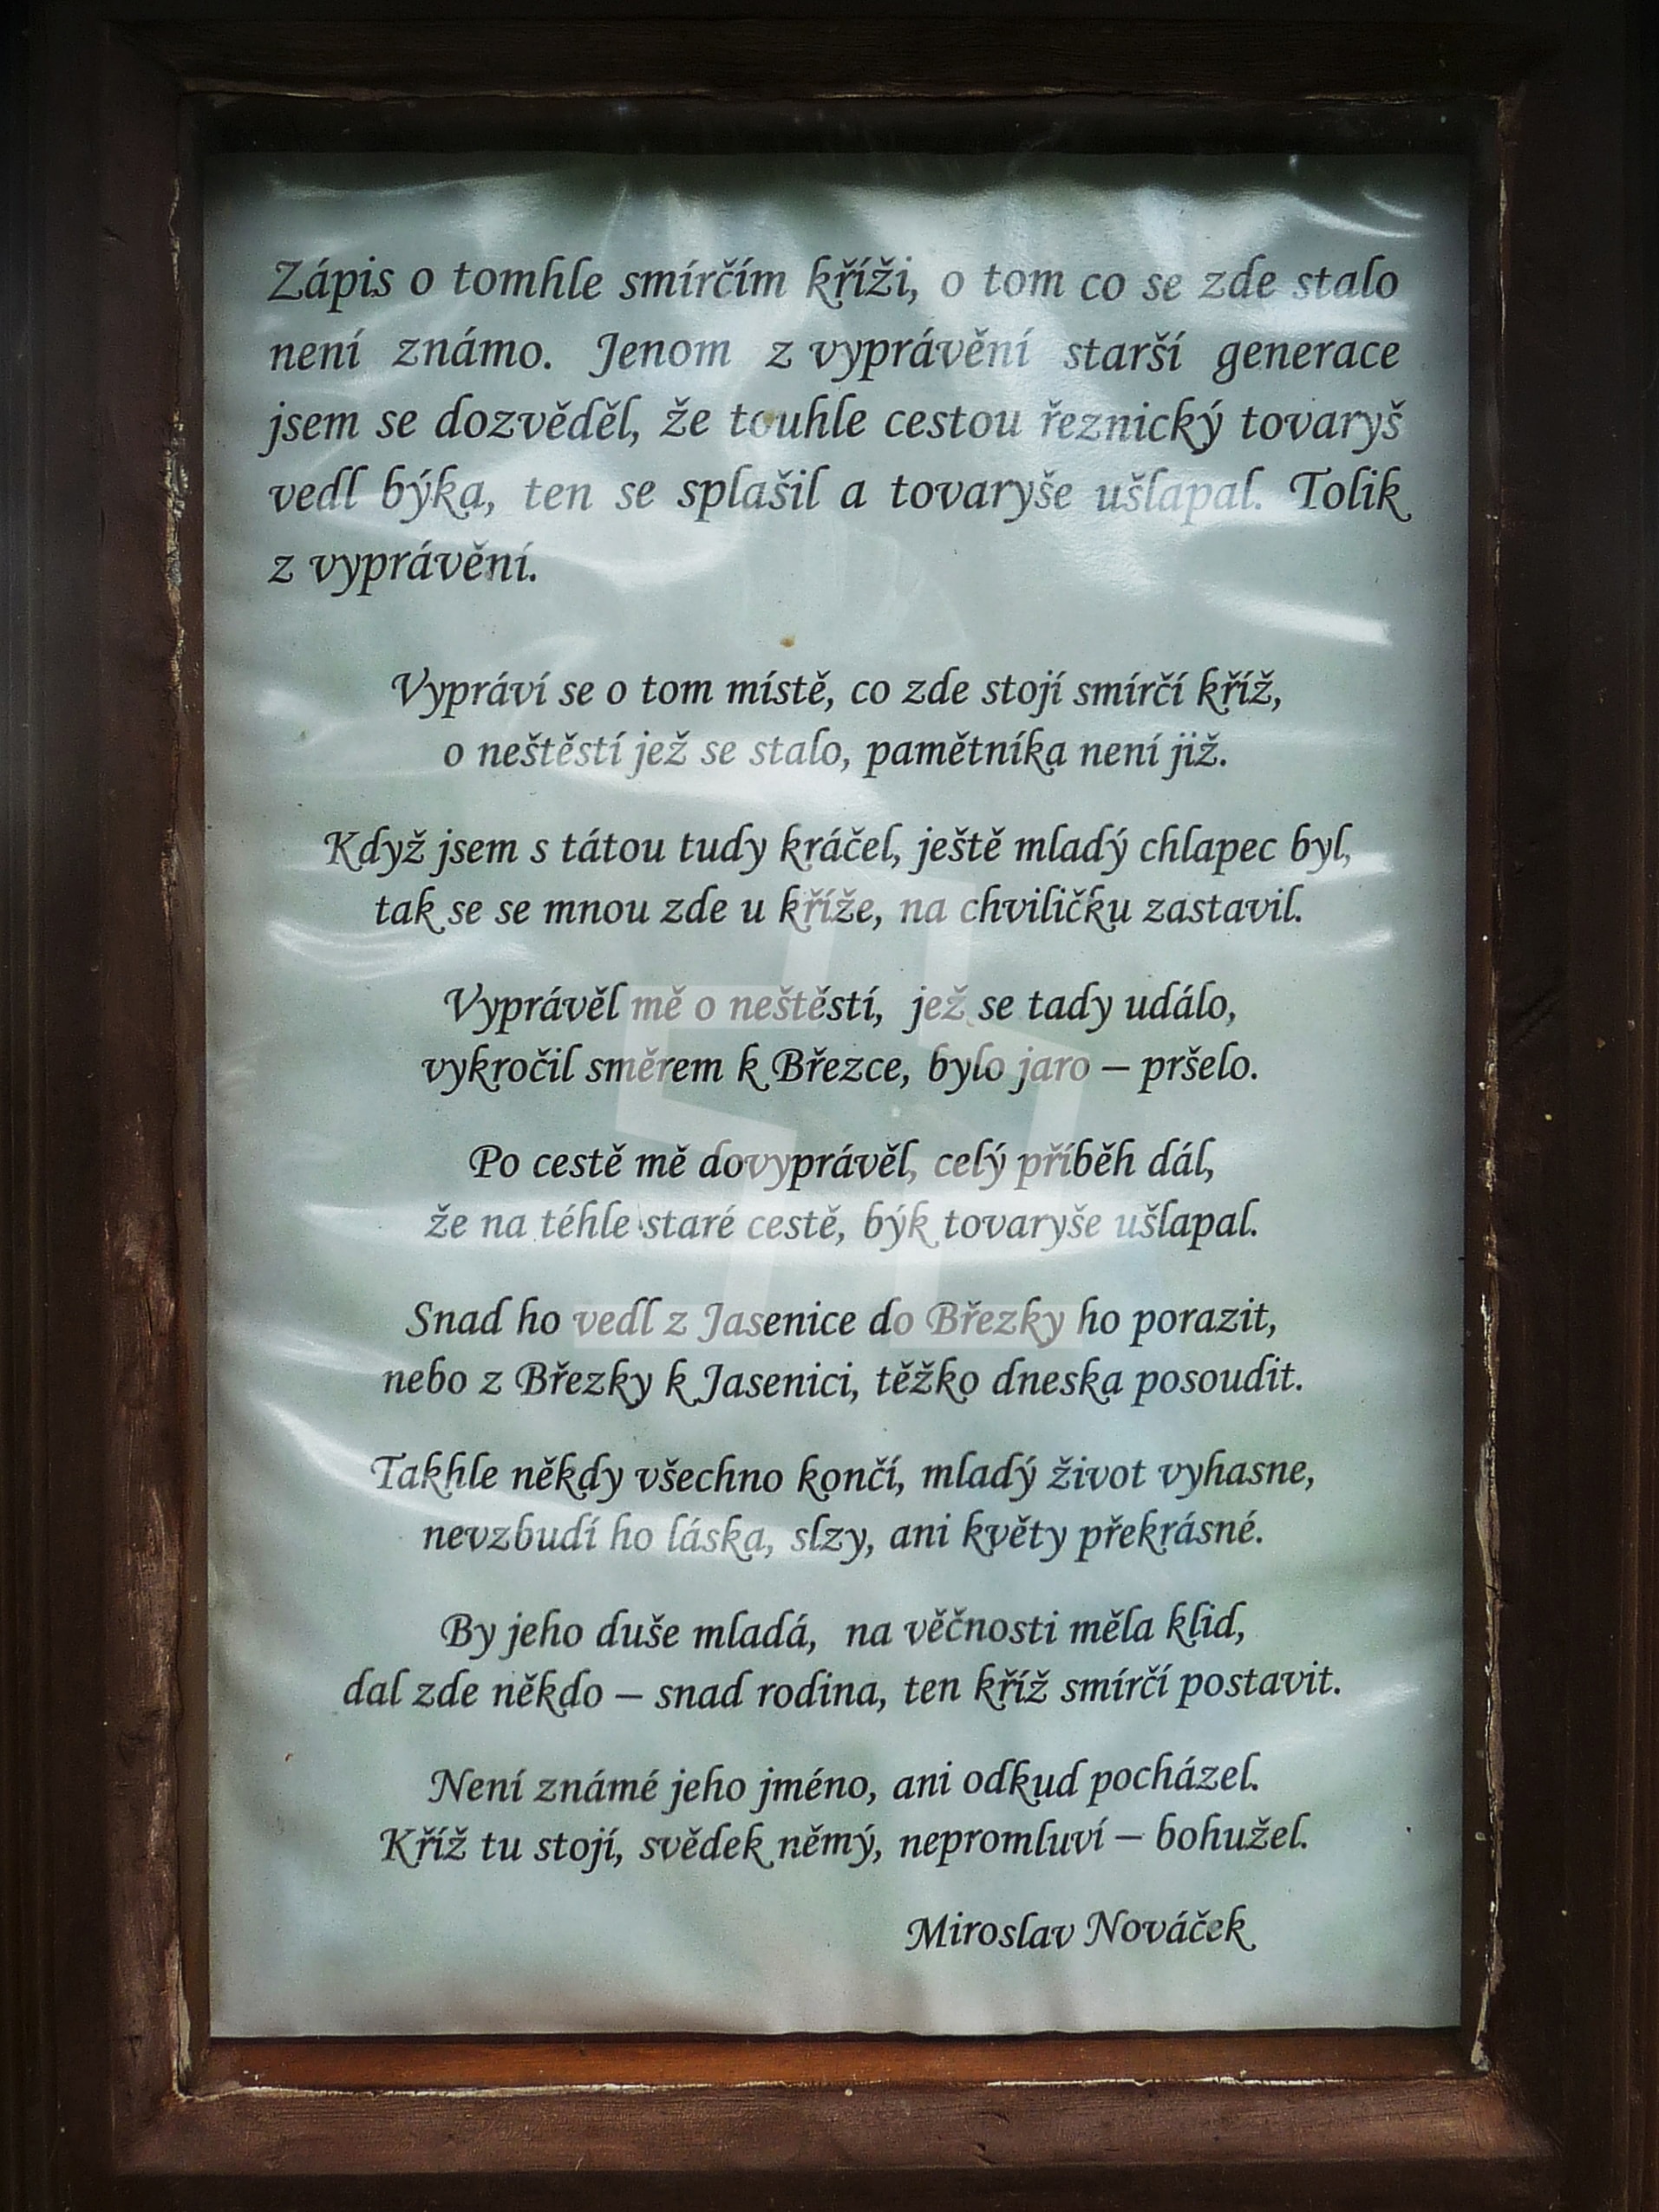 Zápis o tomhle smírčím kříži, o tom co se zde stalo
není známo. Jenom z vyprávění starší generace
jsem se dozvěděl, že touhle cestou řeznický tovaryš
vedl býka, ten se splašil a tovaryše ušlapal. Tolik
z vyprávění.
Vypráví se o tom místě, co zde stojí smírčí kříž,
o neštěstí jež se stalo, pamětníka není již.
Když jsem s tátou tudy kráčel, ještě mladý chlapec byl,
tak se se mnou zde u kříže, na chviličku zastavil.
Vyprávěl mě o neštěstí, jež se tady událo,
vykročil směrem k Březce, bylo jaro – pršelo.
Po cestě mě dovyprávěl, celý příběh dál,
že na téhle staré cestě, býk tovaryše ušlapal.
Snad ho vedl z Jasenice do Březky ho porazit,
nebo z Březky k Jasenici, těžko dneska posoudit.
Takhle někdy všechno končí, mladý život vyhasne,
nevzbudí ho láska, slzy, ani květy překrásné.
By jeho duše mladá, na věčnosti měla klid,
dal zde někdo – snad rodina, ten kříž smírčí postavit.
Není známé jeho jméno, ani odkud pocházel.
Kříž tu stojí, svědek němý, nepromluví – bohužel.
Miroslav Nováček